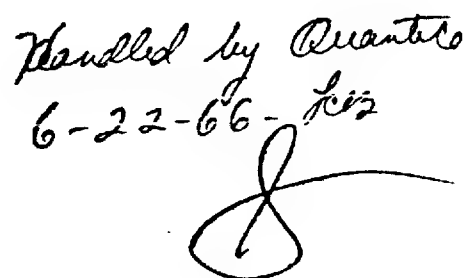 Handled by Quantico
6-22-66-